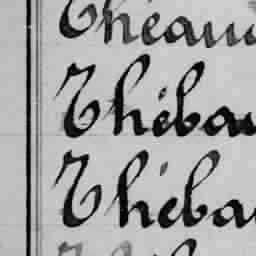 Théau
Théba
Théba